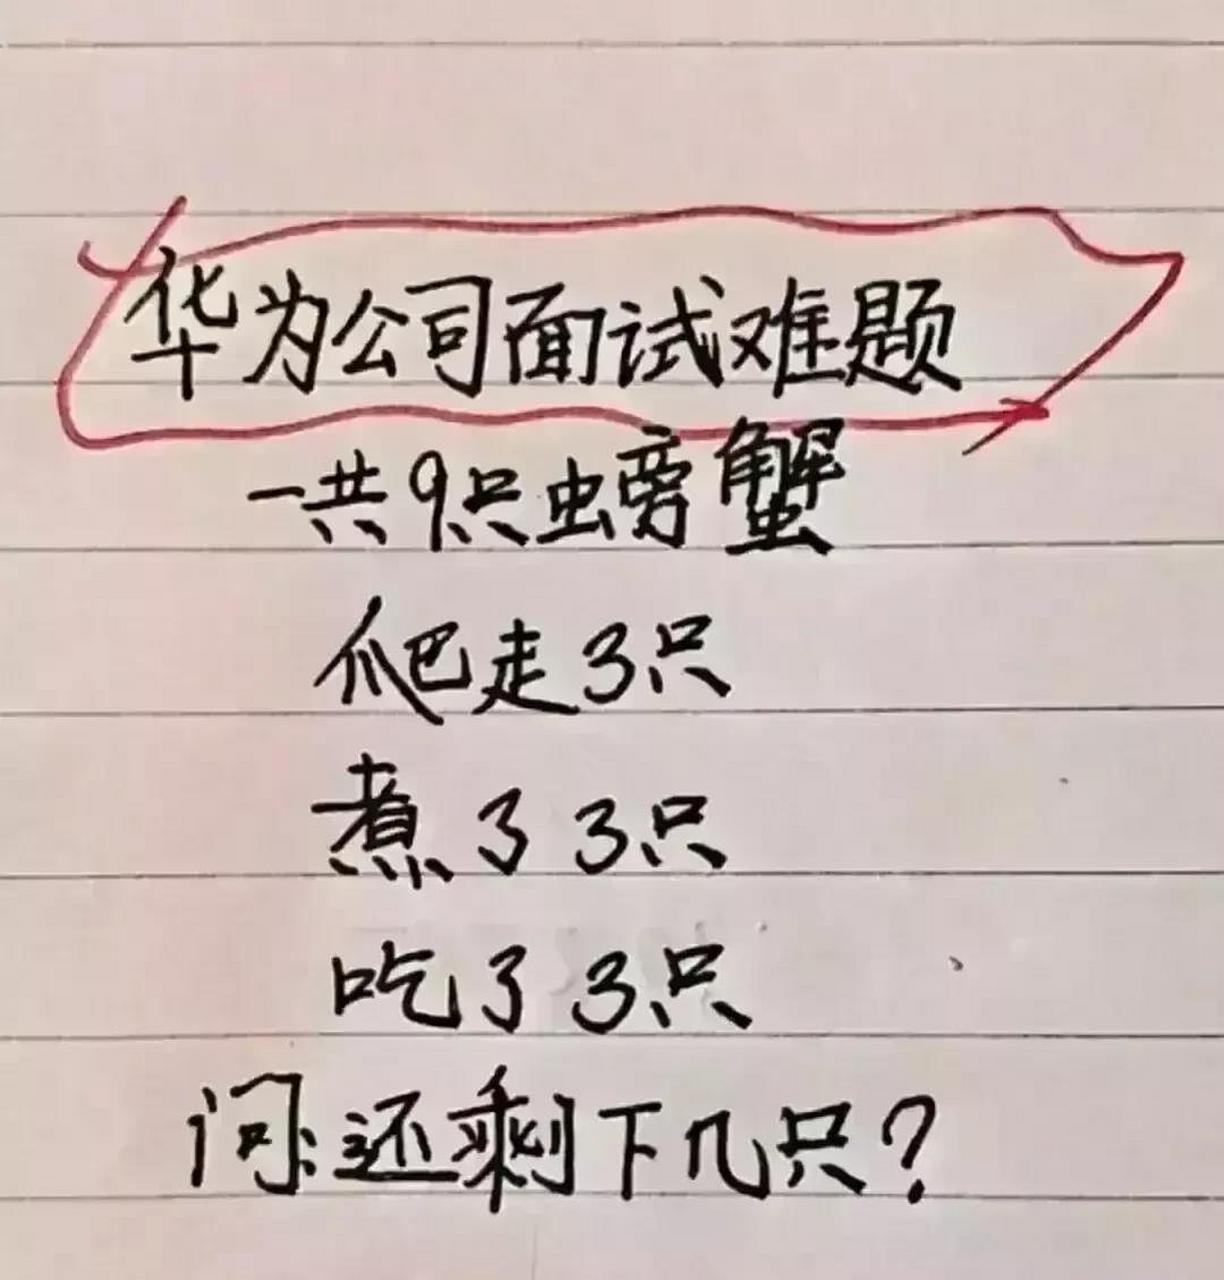 华为公司面试难题
一共9只螃蟹
爬走3只
煮了3只
吃了3只
问:还剩下几只?